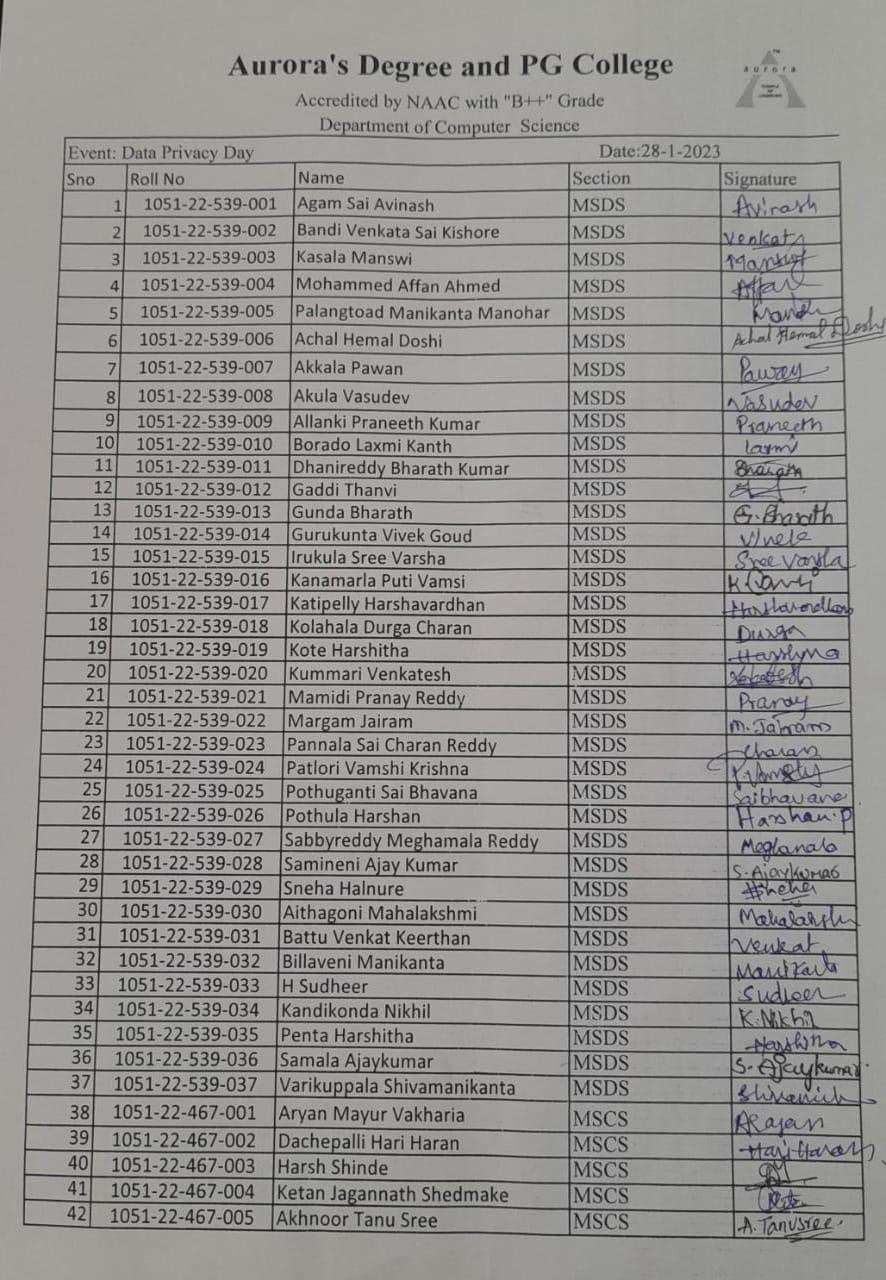 Aurora's Degree and PG College
TM
aurora
Accredited by NAAC with "B++" Grade
Department of Computer Science
Event: Data Privacy Day Date:28-1-2023
Sno Roll No Name Section Signature
1 1051-22-539-001 Agam Sai Avinash MSDS Avinash
2 1051-22-539-002 Bandi Venkata Sai Kishore MSDS Venkat
3 1051-22-539-003 Kasala Manswi MSDS
4 1051-22-539-004 Mohammed Affan Ahmed MSDS Affan
5 1051-22-539-005 Palangtoad Manikanta Manohar MSDS
6 1051-22-539-006 Achal Hemal Doshi MSDS Achal Hemal Doshi
7 1051-22-539-007 Akkala Pawan MSDS
8 1051-22-539-008 Akula Vasudev MSDS Vasudev
9 1051-22-539-009 Allanki Praneeth Kumar MSDS Praneeth
10 1051-22-539-010 Borado Laxmi Kanth MSDS laxmi
11 1051-22-539-011 Dhanireddy Bharath Kumar MSDS
12 1051-22-539-012 Gaddi Thanvi MSDS
13 1051-22-539-013 Gunda Bharath MSDS G.Bharath
14 1051-22-539-014 Gurukunta Vivek Goud MSDS
15 1051-22-539-015 Irukula Sree Varsha MSDS Sree Varsha
16 1051-22-539-016 Kanamarla Puti Vamsi MSDS
17 1051-22-539-017 Katipelly Harshavardhan MSDS Harshavardhan
18 1051-22-539-018 Kolahala Durga Charan MSDS Durga
19 1051-22-539-019 Kote Harshitha MSDS
20 1051-22-539-020 Kummari Venkatesh MSDS
21 1051-22-539-021 Mamidi Pranay Reddy MSDS Pranay
22 1051-22-539-022 Margam Jairam MSDS M.Jairam
23 1051-22-539-023 Pannala Sai Charan Reddy MSDS Charan
24 1051-22-539-024 Patlori Vamshi Krishna MSDS
25 1051-22-539-025 Pothuganti Sai Bhavana MSDS Saibhavana
26 1051-22-539-026 Pothula Harshan MSDS Harshan.P
27 1051-22-539-027 Sabbyreddy Meghamala Reddy MSDS
28 1051-22-539-028 Samineni Ajay Kumar MSDS S.Ajaykumar
29 1051-22-539-029 Sneha Halnure MSDS Sneha
30 1051-22-539-030 Aithagoni Mahalakshmi MSDS
31 1051-22-539-031 Battu Venkat Keerthan MSDS Venkat
32 1051-22-539-032 Billaveni Manikanta MSDS Manikanta
33 1051-22-539-033 H Sudheer MSDS Sudheer
34 1051-22-539-034 Kandikonda Nikhil MSDS K.Nikhil
35 1051-22-539-035 Penta Harshitha MSDS
36 1051-22-539-036 Samala Ajaykumar MSDS S.Ajaykumar
37 1051-22-539-037 Varikuppala Shivamanikanta MSDS
38 1051-22-467-001 Aryan Mayur Vakharia MSCS
39 1051-22-467-002 Dachepalli Hari Haran MSCS Hari Haran
40 1051-22-467-003 Harsh Shinde MSCS
41 1051-22-467-004 Ketan Jagannath Shedmake MSCS
42 1051-22-467-005 Akhnoor Tanu Sree MSCS A.Tanusree